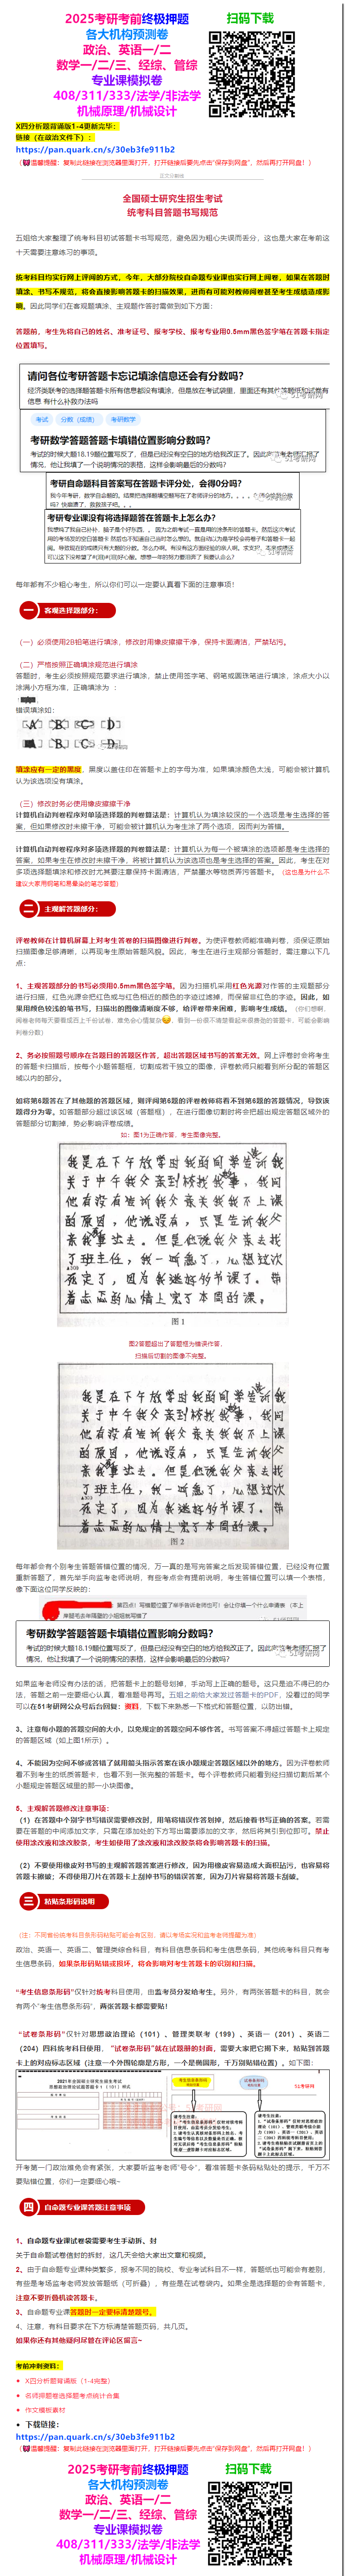 2025考研考前终极押题
扫码下载
各大机构预测卷
政治、英语一/二
数学一/二/三、经综、管综
专业课模拟卷
408/311/333/法学/非法学
机械原理/机械设计
X四分析题背诵版1-4更新完毕：
链接（在政治文件下）：
https://pan.quark.cn/s/30eb3fe911b2
全国硕士研究生招生考试
统考科目答题书写规范
五姐给大家整理了统考科目初试答题卡书写规范，避免因为粗心失误而丢分，这也是大家在考前这
十天需要注意练习的事项。
统考科目均实行网上评阅的方式，今年，大部分院校自命题专业课也实行网上阅卷，如果在答题时
填涂、书写不规范，将会直接影响答题卡的扫描效果，进而有可能对教师阅卷甚至考生成绩造成影
响。因此同学们在客观题填涂、主观题作答时需做到如下方面：
答题前，考生先将自己的姓名、准考证号、报考学校、报考专业用0.5mm黑色签字笔在答题卡指定
位置填写。
请问各位考研答题卡忘记填涂信息还会有分数吗？
考试
分数（成绩）
考研数学
考研数学答题答题卡填错位置影响分数吗？
考研自命题科目答案写在答题卡评分处，会得0分吗？
考研专业课没有将选择题答在答题卡上怎么办？
每年都有不少粗心考生，所以你们可以一定要认真看下面的注意事项！
一
客观选择题部分：
（一）必须使用2B铅笔进行填涂，修改时用橡皮擦擦干净，保持卡面清洁，严禁玷污。
（二）严格按照正确填涂规范进行填涂
答题时，考生必须按照规范要求进行填涂，禁止使用签字笔、钢笔或圆珠笔进行填涂，涂点大小以
涂满小方框为准，正确填涂为 ：
错误填涂如：
填涂应有一定的黑度，黑度以盖住印在答题卡上的字母为准，如果填涂颜色太浅，可能会被计算机
认为该选项没有填涂。
（三）修改时务必使用橡皮擦擦干净
计算机自动判卷程序对单项选择题的判卷算法是：计算机认为填涂较深的一个选项是考生选择的答
案，但如果修改时未擦干净，可能会被计算机认为考生涂了两个选项，因而判为答错。
计算机自动判卷程序对多项选择题的判卷算法是：计算机认为每一个被填涂的选项都是考生选择的
答案，如果考生在修改时未擦干净，将被计算机认为该选项也是考生选择的答案。因此，考生在对
多项选择题填涂和修改时尤其要注意保持卡面清洁，严禁墨水等物质弄污答题卡。（这也是为什么不
建议大家用钢笔和易晕染的笔芯答题）
二
主观解答题部分：
评卷教师在计算机屏幕上对考生答卷的扫描图像进行判卷。为使评卷教师能准确判卷，须保证原始
扫描图像足够清晰，以再现考生原始答题风貌。因此，考生在进行主观部分答题时，需注意以下几
点：
1、主观题部分的书写必须用0.5mm黑色签字笔。因为扫描机采用红色光源对作答的主观题部分
进行扫描，红色光源会把红色或与红色相近的颜色的字迹过滤掉，而保留非红色的字迹。因此，如
果用颜色较浅的笔书写，扫描出的图像清晰度不够，给评卷带来困难，影响考生成绩。
2、务必按照题号顺序在各题目的答题区作答，超出答题区域书写的答案无效。网上评卷时会将考生
的答题卡扫描后，按每个小题答题框，切割成若干独立的图像，评卷教师只能看到所分配的答题区
域以内的部分。
如将第6题答在了其他题的答题区域，则评阅第6题的评卷教师将看不到第6题的答题情况，导致该
题得分为零。如答题部分超过该区域（答题框），在进行图像切割时将会把超出规定答题区域外的
答题部分切割掉，势必影响评卷成绩。
如：图1为正确作答，考生图像完整。
图 1
图2答题超出了答题框为错误作答，
扫描后切割的图像不完整。
图 2
每年都会有个别考生答题答错位置的情况，万一真的是写完答案之后发现答错位置，已经没有位置
重新答题了，首先举手向监考老师说明，有些考点会有提前说明，考生答错位置可以填一个表格，
像下面这位同学反映的：
考研数学答题答题卡填错位置影响分数吗？
如果监考老师没有办法的话，把答题卡上的题号划掉，手动写上正确的题号。这只是迫不得已的办
法，答题之前一定要细心认真，看准题号再写。五姐之前给大家发过答题卡的PDF，没看过的同学
可以在51考研网公众号后台回复：资料，下载下来熟悉一下格式和答题位置，以防出错。
3、注意每小题的答题空间的大小，以免规定的答题空间不够作答。书写答案不得超过答题卡上规定
的答题区域（如上图1所示）。
4、不能因为空间不够或答错了就用箭头指示答案在该小题规定答题区域以外的地方。因为评卷教师
看不到考生的纸质答题卡，也看不到一张完整的答题卡。每个评卷教师只能看到经扫描切割后某个
小题规定答题区域里的那一小块图像。
5、主观解答题修改注意事项：
（1）在答题中个别字书写错误需要修改时，用笔将错误作答划掉，然后接着书写正确的答案。若需
要在答题的中间添加文字，只需在添加处的下方写出需要添加的文字，然后将其引到位即可。禁止
使用涂改液和涂改胶条，考生如使用了涂改液和涂改胶条将会影响答题卡的扫描。
（2）不要使用橡皮对书写的主观解答题答案进行修改，因为用橡皮容易造成大面积玷污，也容易将
答题卡擦破；不得使用刀片在答题卡上刮掉书写的错误答案，因为刀片容易将答题卡刮破。
三
粘贴条形码说明
（注：不同省份统考科目条形码粘贴可能会有区别，请以考场实况和监考老师提醒为准）
政治、英语一、英语二、管理类综合科目，有科目信息条码和考生信息条码，其他统考科目只有考
生信息条码，如果条形码贴错或损坏，将会影响对考生答题卡的识别和扫描。
“考生信息条形码”仅针对统考科目使用，由监考员分发给考生。另外，有两张答题卡的科目，就会
有两个“考生信息条形码”，两张答题卡都需要贴！
“试卷条形码”仅针对思想政治理论（101）、管理类联考（199）、英语一（201）、英语二
（204）四科统考科目使用，“试卷条形码”就在试题册的封面，需要大家把它揭下来，粘贴到答题
卡上的对应标志区域（注意一个外围轮廓是方形，一个是椭圆形，千万别贴错位置）。如下图：
开考第一门政治难免会有紧张，大家要听监考老师“号令”，看准答题卡条码粘贴处的提示，千万不
要贴错位置，你们一定要细心哦~
四
自命题专业课答题注意事项
1、自命题专业课试卷袋需要考生手动拆、封
关于自命题试卷信封的拆封，这几天会给大家出文章和视频。
2、由于自命题专业课种类繁多，报考不同的院校，专业考试科目不一样，答题纸也可能会有差别，
有些是考场监考老师发放答题纸（可折叠），有些是在试卷袋内。如果全是选择题的会有答题卡，
注意不要折叠机读答题卡。
3、自命题专业课答题时一定要标清楚题号。
4、注意，有科目要求在下方标清楚答题页码，共几页。
如果你还有其他疑问尽管在评论区留言~
考前冲刺资料：
X四分析题背诵版（1-4完整）
名师押题卷选择题考点统计合集
作文模板素材
下载链接：
https://pan.quark.cn/s/30eb3fe911b2
（温馨提醒：复制此链接在浏览器里面打开，打开链接后要先点击“保存到网盘”，然后再打开网盘！）
2025考研考前终极押题
扫码下载
各大机构预测卷
政治、英语一/二
数学一/二/三、经综、管综
专业课模拟卷
408/311/333/法学/非法学
机械原理/机械设计